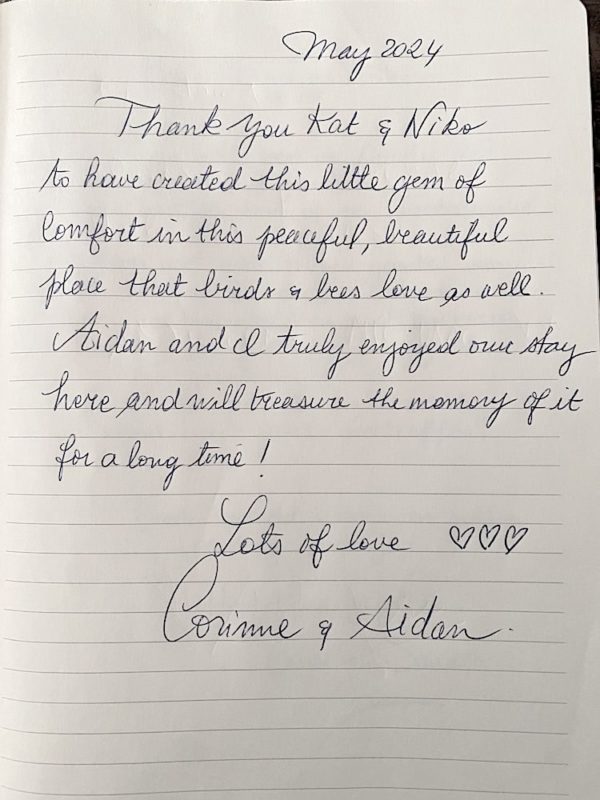 May 2024
Thank you Kat & Niko
to have created this little gem of
comfort in this peaceful, beautiful
place that birds & bees love as well.
Aidan and I truly enjoyed our stay
here and will treasure the memory of it
for a long time!
Lots of love ♡♡♡
Corinne & Aidan.